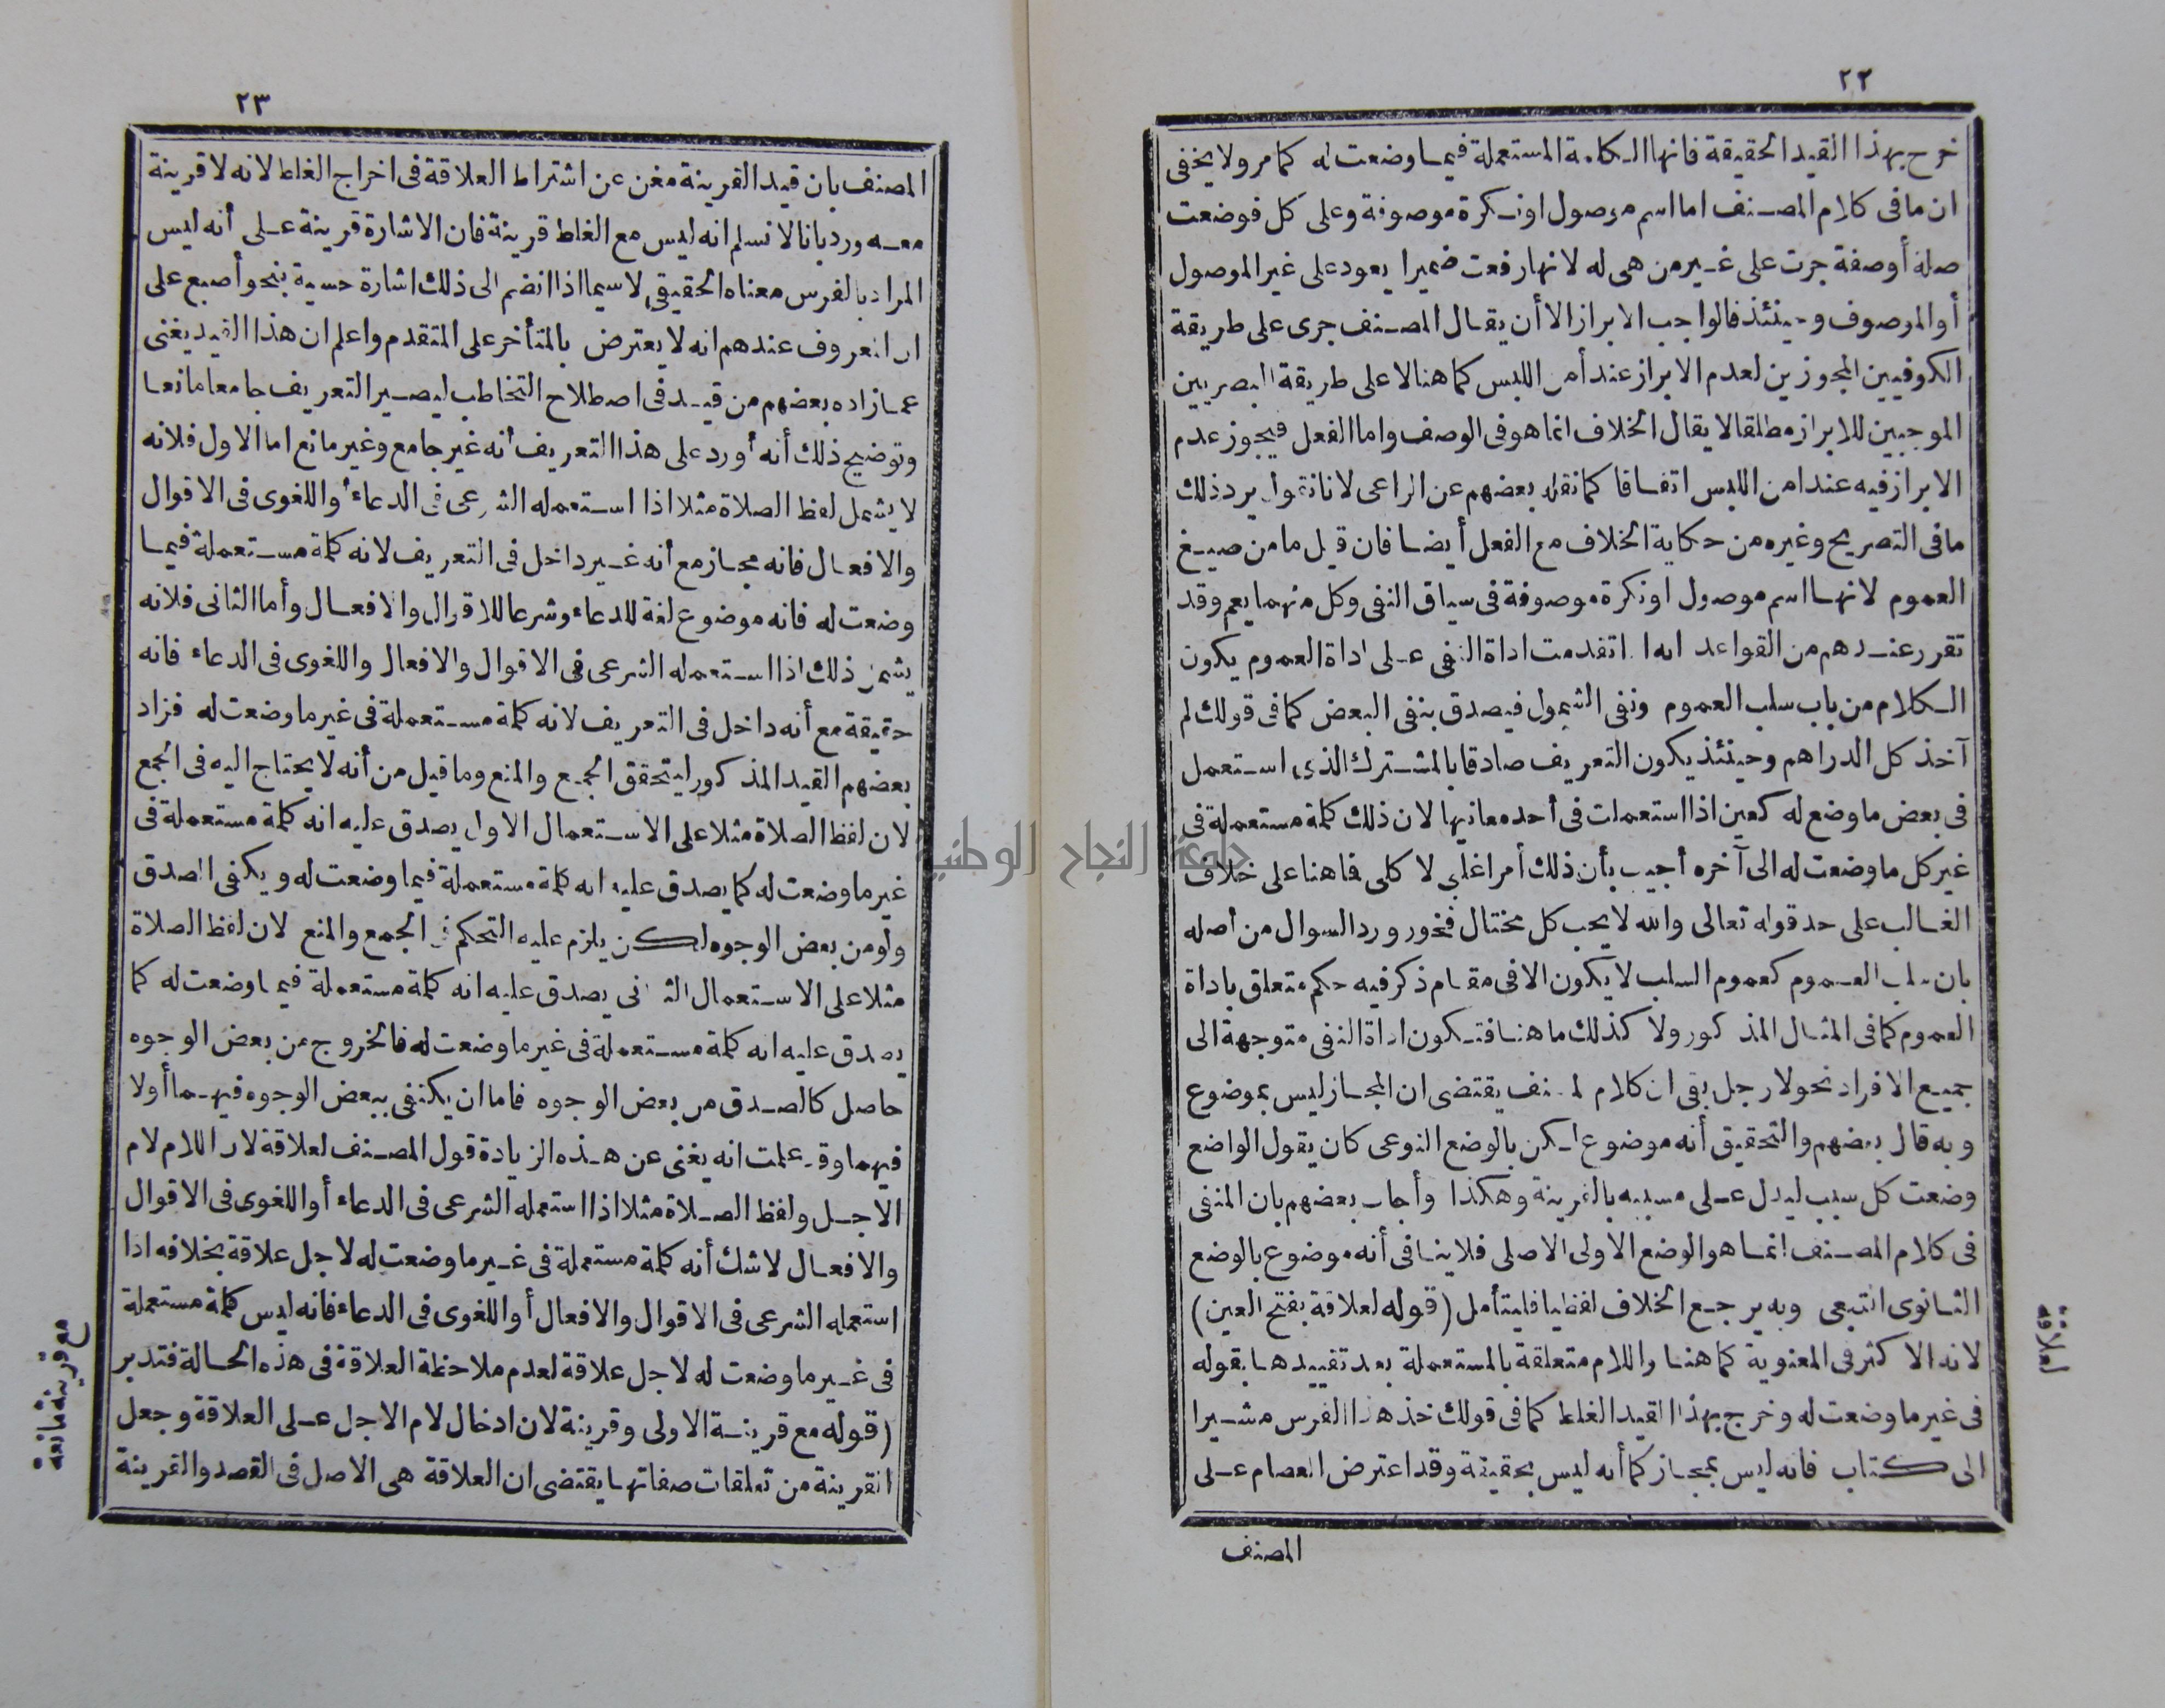 ٢٢
خرج بهذا القيد الحقيقة فانها الكلمة المستعملة فيما وضعت له كما مر ولا يخفى
ان ما فى كلام المصنف اما اسم موصول او نكرة موصوفة وعلى كل فوضعت
صلة أو صفة جرت على غير من هى له لانها رفعت ضميرا يعود على غير الموصول
أو الموصوف وحينئذ فالواجب الابراز الا أن يقال المصنف جرى على طريقة
الكوفيين المجوزين لعدم الابراز عند أمن اللبس كما هنا لا على طريقة البصريين
الموجبين للابراز مطلقا لا يقال الخلاف انما هو فى الوصف واما الفعل فيجوز عدم
الابراز فيه عند امن اللبس اتفاقا كما نقله بعضهم عن الراعى لانا نقول يرد ذلك
ما فى التصريح وغيره من حكاية الخلاف مع الفعل أيضا فان قيل ما من صيغ
العموم لانها اسم موصول او نكرة موصوفة فى سياق النفى وكل منهما يعم وقد
تقرر عندهم من القواعد انه اذا تقدمت اداة النفى على اداة العموم يكون
الكلام من باب سلب العموم ونفى الشمول فيصدق بنفى البعض كما فى قولك لم
آخذ كل الدراهم وحينئذ يكون التعريف صادقا بالمشترك الذى استعمل
فى بعض ما وضع له كعين اذا استعملت فى أحد معانيها لان ذلك كلمة مستعملة فى
غير كل ما وضعت له الى آخره أجيب بأن ذلك أمر اغلبى لا كلى فما هنا على خلاف
الغالب على حد قوله تعالى والله لا يحب كل مختال فخور ورد السوال من أصله
بان سلب العموم كعموم السلب لا يكون الا فى مقام ذكر فيه حكم متعلق باداة
العموم كما فى المثال المذكور ولا كذلك ما هنا فتكون اداة النفى متوجهة الى
جميع الافراد نحو لا رجل بقى ان كلام المصنف يقتضى ان المجاز ليس بموضوع
وبه قال بعضهم والتحقيق أنه موضوع لكن بالوضع النوعى كان يقول الواضع
وضعت كل سبب ليدل على مسببه بالقرينة وهكذا وأجاب بعضهم بان المنفى
فى كلام المصنف انما هو الوضع الاولى الاصلى فلا ينافى أنه موضوع بالوضع
الثانوى التبعى وبه يرجع الخلاف لفظيا فليتأمل (قوله لعلاقة بفتح العين)
لانه الا كثر فى المعنوية كما هنا واللام متعلقة بالمستعملة بعد تقييدها بقوله
فى غير ما وضعت له وخرج بهذا القيد الغلط كما فى قولك خذ هذا الفرس مشيرا
الى كتاب فانه ليس بمجاز كما أنه ليس بحقيقة وقد اعترض العصام على
المصنف
لعلاقة
٢٣
المصنف بان قيد القرينة مغن عن اشتراط العلاقة فى اخراج الغلط لانه لا قرينة
معه ورد بانا لا نسلم انه ليس مع الغلط قرينة فان الاشارة قرينة على أنه ليس
المراد بالفرس معناه الحقيقى لا سيما اذا انضم الى ذلك اشارة حسية بنحو أصبع على
ان المعروف عندهم انه لا يعترض بالمتأخر على المتقدم واعلم ان هذا القيد يغنى
عما زاده بعضهم من قيد فى اصطلاح التخاطب ليصير التعريف جامعا مانعا
وتوضيح ذلك أنه أورد على هذا التعريف أنه غير جامع وغير مانع اما الاول فلانه
لا يشمل لفظ الصلاة مثلا اذا استعمله الشرعى فى الدعاء أو اللغوى فى الاقوال
والافعال فانه مجاز مع أنه غير داخل فى التعريف لانه كلمة مستعملة فيما
وضعت له فانه موضوع لغة للدعاء وشرعا للاقوال والافعال وأما الثانى فلانه
يشمل ذلك اذا استعمله الشرعى فى الاقوال والافعال واللغوى فى الدعاء فانه
حقيقة مع أنه داخل فى التعريف لانه كلمة مستعملة فى غير ما وضعت له فزاد
بعضهم القيد المذكور ليتحقق الجمع والمنع وما قيل من أنه لا يحتاج اليه فى الجمع
لان لفظ الصلاة مثلا على الاستعمال الاول يصدق عليه انه كلمة مستعملة فى
غير ما وضعت له كما يصدق عليه انه كلمة مستعملة فيما وضعت له ويكفى الصدق
ولو من بعض الوجوه لكن يلزم عليه التحكم فى الجمع والمنع لان لفظ الصلاة
مثلا على الاستعمال الثانى يصدق عليه انه كلمة مستعملة فيما وضعت له كما
يصدق عليه انه كلمة مستعملة فى غير ما وضعت له فالخروج من بعض الوجوه
حاصل كالصدق من بعض الوجوه فاما ان يكتفى ببعض الوجوه فيهما أولا
فيهما وقد علمت انه يغنى عن هذه الزيادة قول المصنف لعلاقة لان اللام لام
الاجل ولفظ الصلاة مثلا اذا استعمله الشرعى فى الدعاء أو اللغوى فى الاقوال
والافعال لا شك أنه كلمة مستعملة فى غير ما وضعت له لاجل علاقة بخلافه اذا
استعمله الشرعى فى الاقوال والافعال أو اللغوى فى الدعاء فانه ليس كلمة مستعملة
فى غير ما وضعت له لاجل علاقة لعدم ملاحظة العلاقة فى هذه الحالة فتدبر
(قوله مع قرينة الاولى وقرينة لان ادخال لام الاجل على العلاقة وجعل
القرينة من تعلقات صفاتها يقتضى ان العلاقة هى الاصل فى القصد والقرينة
مع قرينة مانعة
جامعة النجاح الوطنية